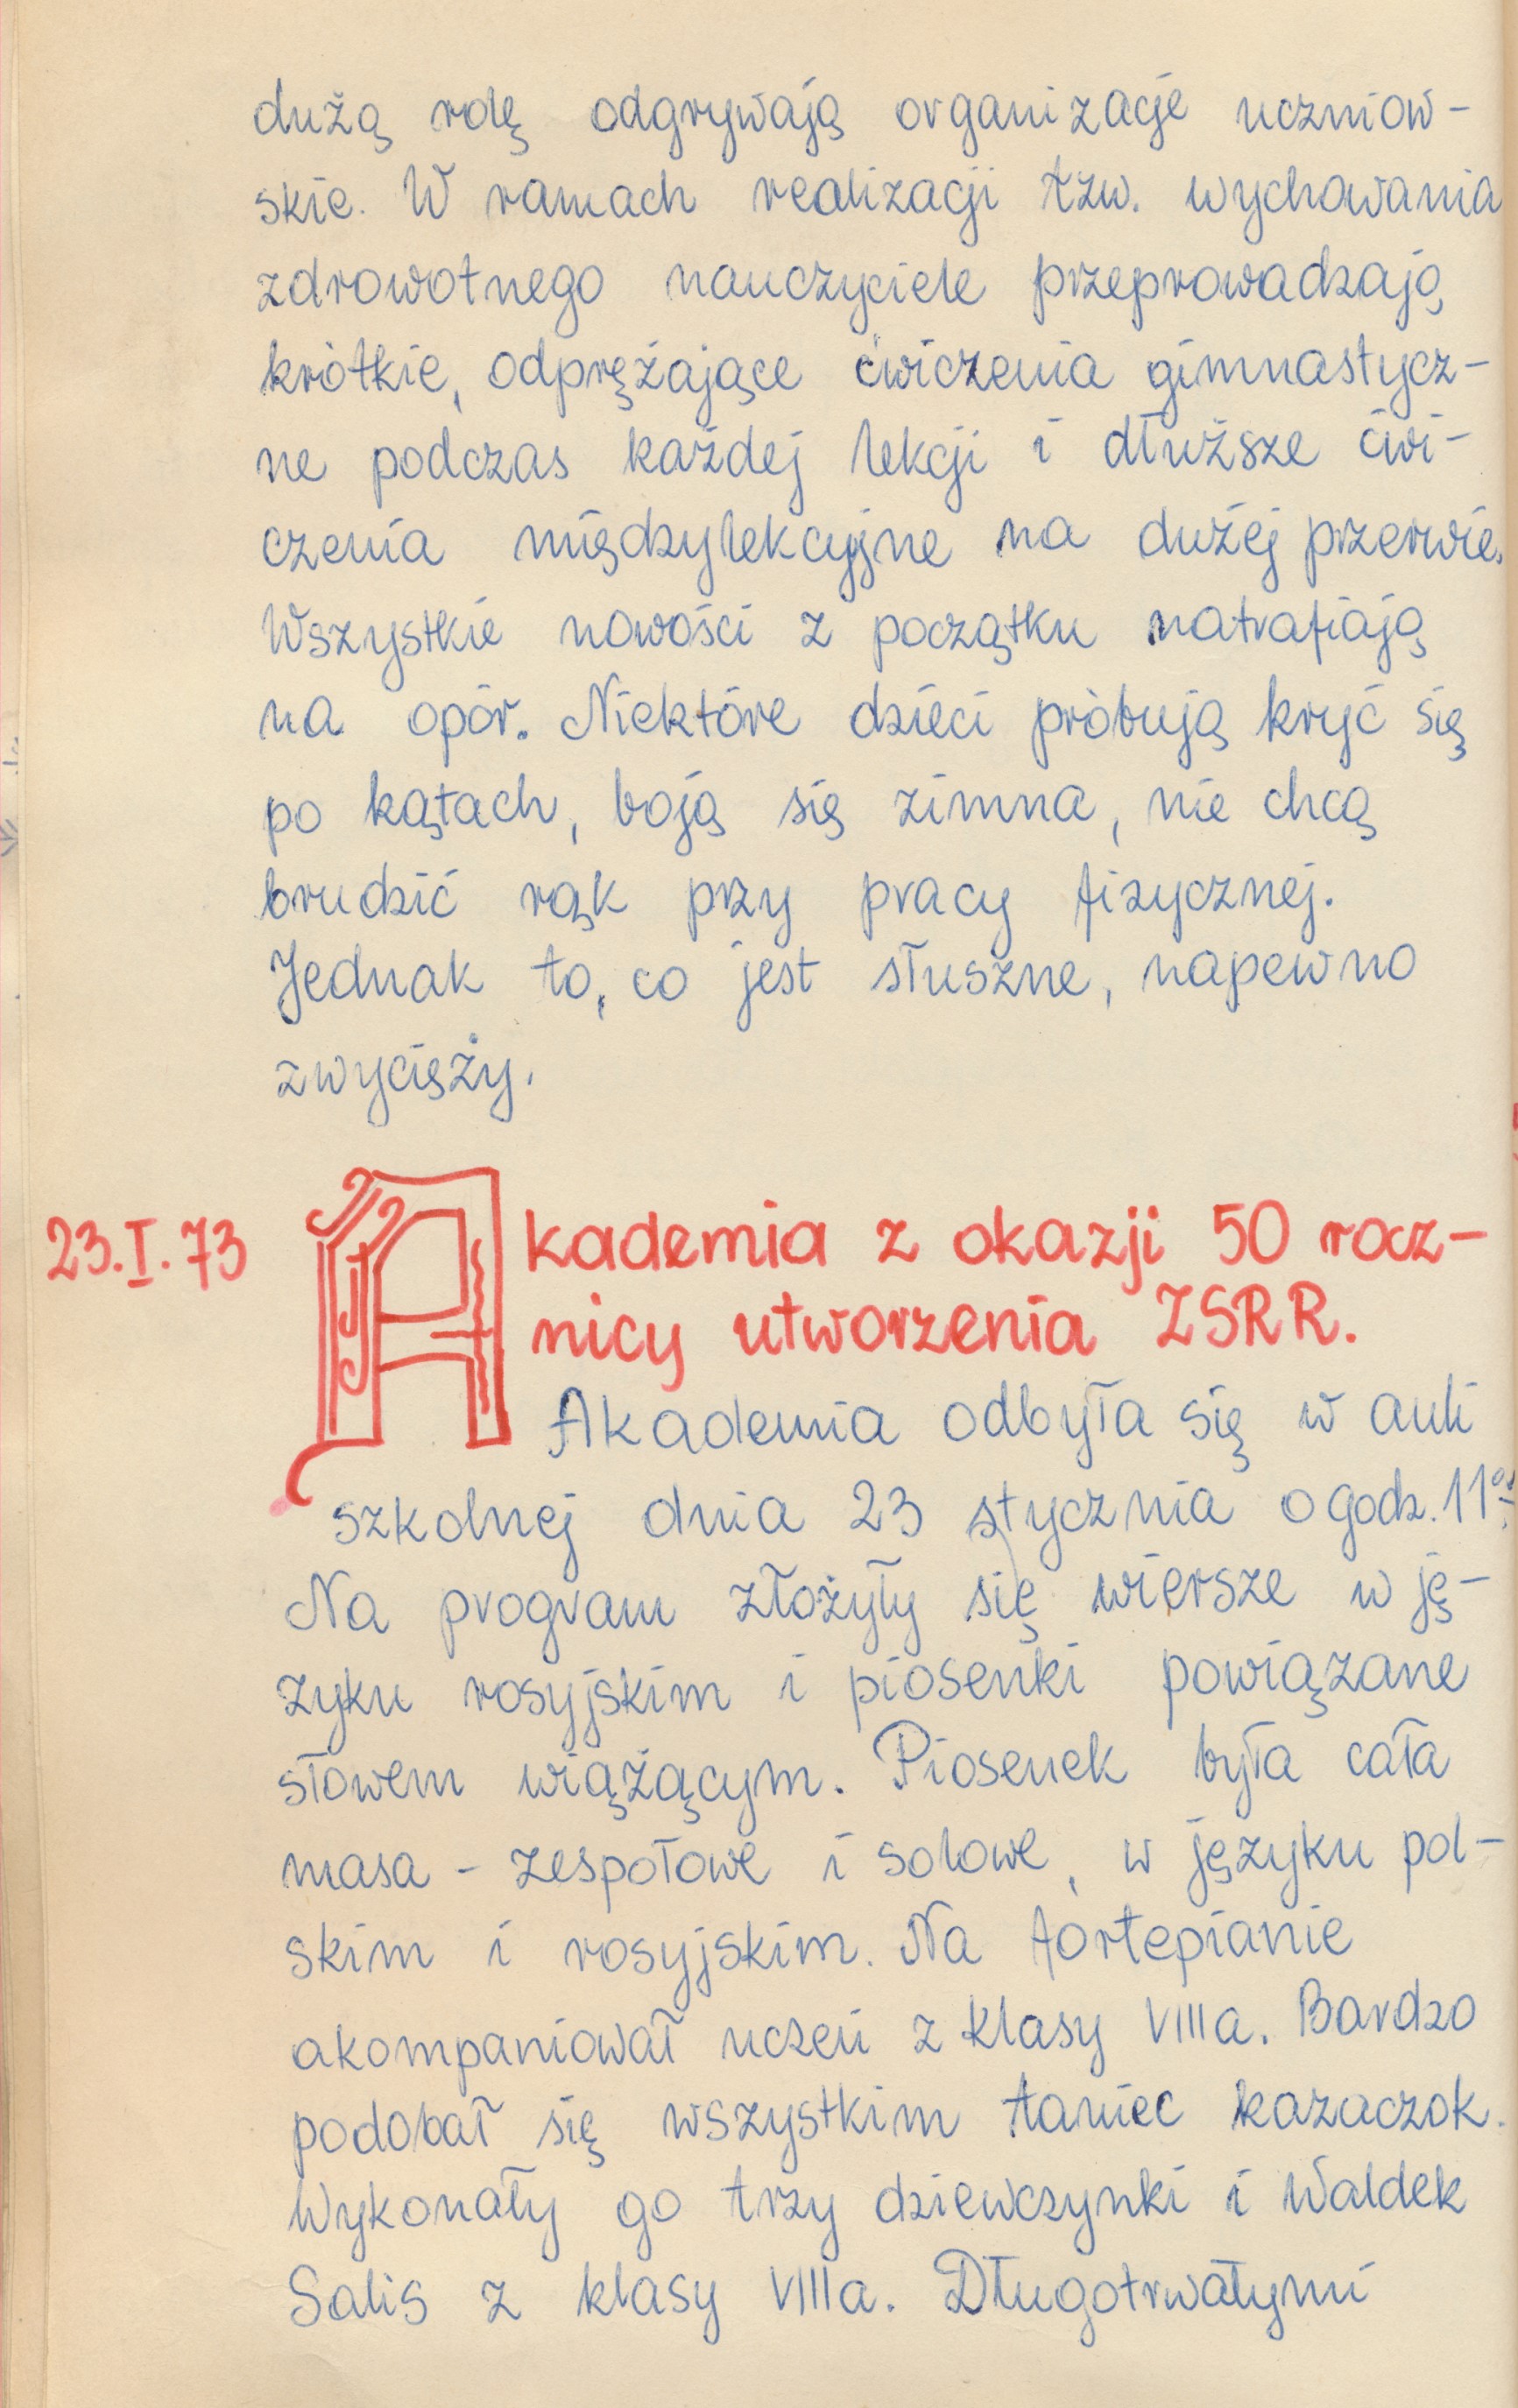 dużą rolę odgrywają organizacje uczniow-
skie. W ramach realizacji tzw. wychowania
zdrowotnego nauczyciele przeprowadzają
krótkie, odprężające ćwiczenia gimnastycz-
ne podczas każdej lekcji i dłuższe ćwi-
czenia międzylekcyjne na dużej przerwie.
Wszystkie nowości z początku natrafiają
na opór. Niektóre dzieci próbują kryć się
po kątach, boją się zimna, nie chcą
brudzić rąk przy pracy fizycznej.
Jednak to, co jest słuszne, napewno
zwycięży.
23.I.73 Akademia z okazji 50 rocz-
nicy utworzenia ZSRR.
Akademia odbyła się w auli
szkolnej dnia 23 stycznia o godz. 11⁰⁰.
Na program złożyły się wiersze w ję-
zyku rosyjskim i piosenki powiązane
słowem wiążącym. Piosenek była cała
masa - zespołowe i solowe, w języku pol-
skim i rosyjskim. Na fortepianie
akompaniował uczeń z klasy VIIIa. Bardzo
podobał się wszystkim taniec kazaczok.
Wykonały go trzy dziewczynki i Waldek
Salis z klasy VIIIa. Długotrwałymi